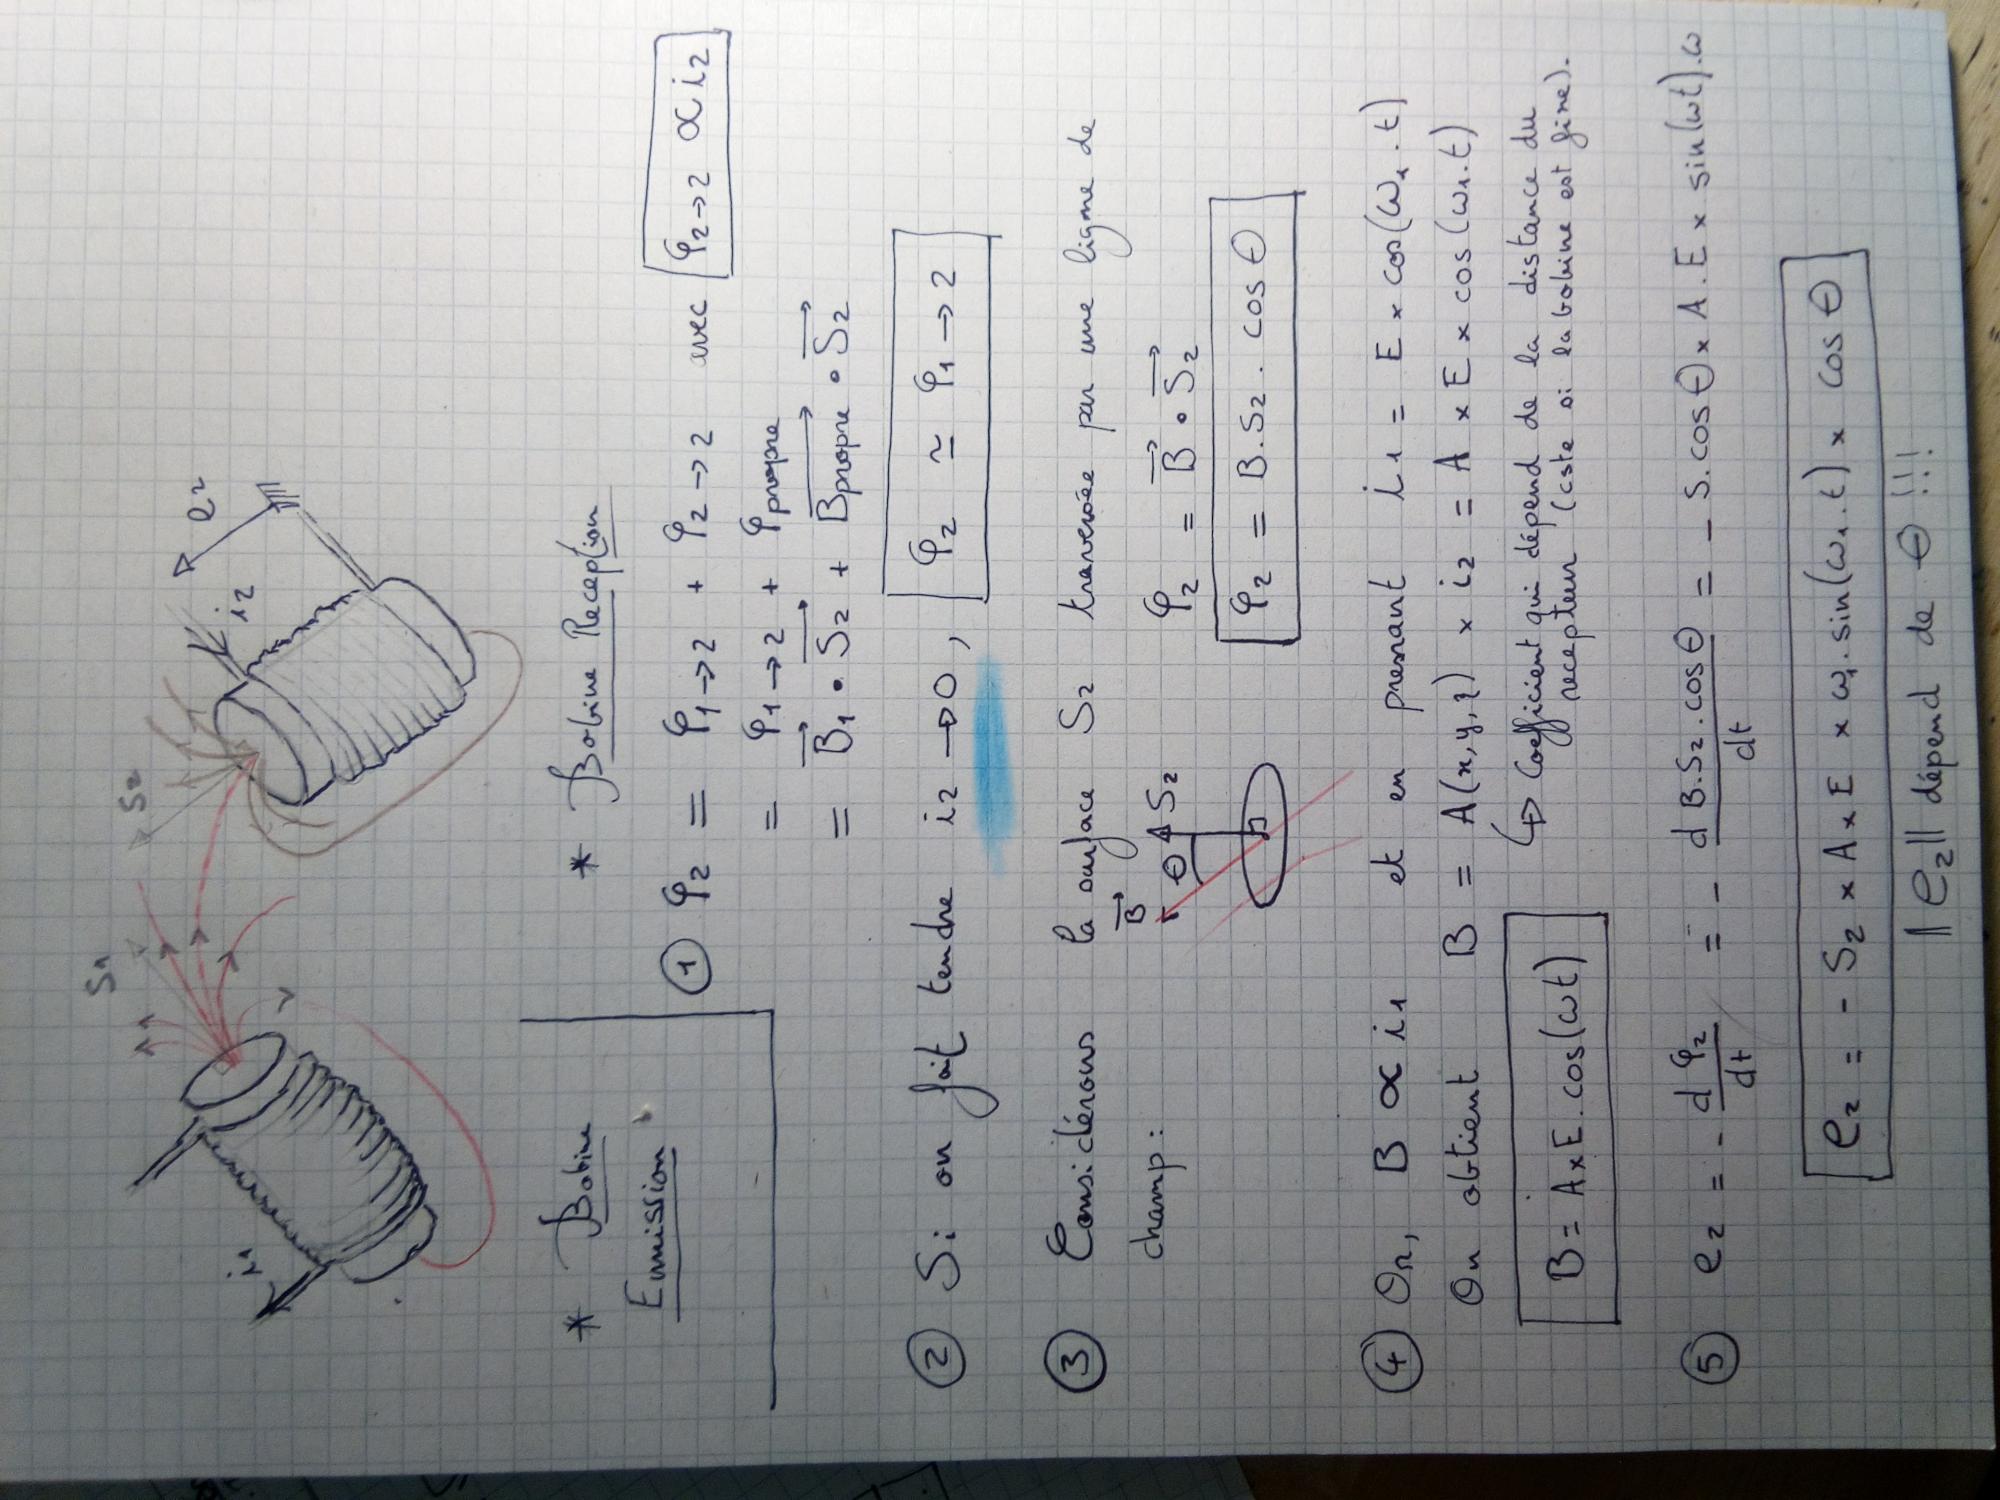 S1
S2
i1
i2
e2
* Bobine
Emission
* Bobine Reception
① φ2 = φ1→2 + φ2→2 avec φ2→2 ∝ i2
= φ1→2 + φpropre
= B1 • S2 + Bpropre • S2
② Si on fait tendre i2 → 0, φ2 ≃ φ1→2
③ Considérons la surface S2 traversée par une ligne de
champ :
B
θ
S2
φ2 = B • S2
φ2 = B.S2.cos θ
④ Or, B ∝ i1 et en prenant i1 = E × cos(ω1.t)
On obtient B = A(x,y,z) × i2 = A × E × cos(ω1.t)
↳ Coefficient qui dépend de la distance du
recepteur (cste si la bobine est fine).
B = A×E.cos(ωt)
⑤ e2 = - dφ2/dt = - d B.S2.cosθ/dt = - S.cosθ × A.E × sin(ωt).ω
e2 = - S2 × A × E × ω1.sin(ω1.t) × cos θ
|| e2 || dépend de θ !!!